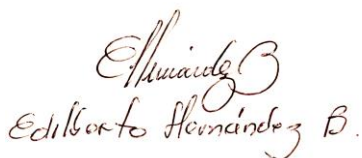 E. Hernández B
Edilberto Hernández B.